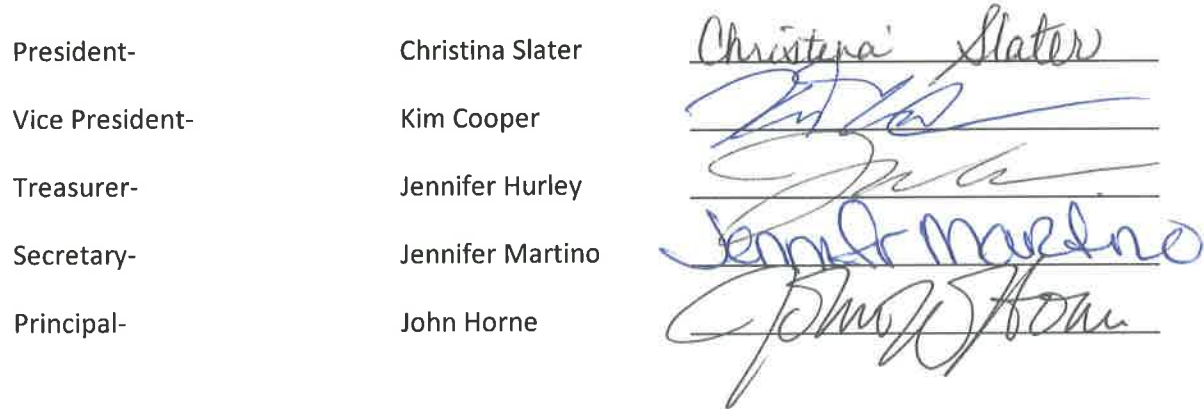 President- Christina Slater Christina Slater
Vice President- Kim Cooper
Treasurer- Jennifer Hurley
Secretary- Jennifer Martino Jennifer Martino
Principal- John Horne John W Horne